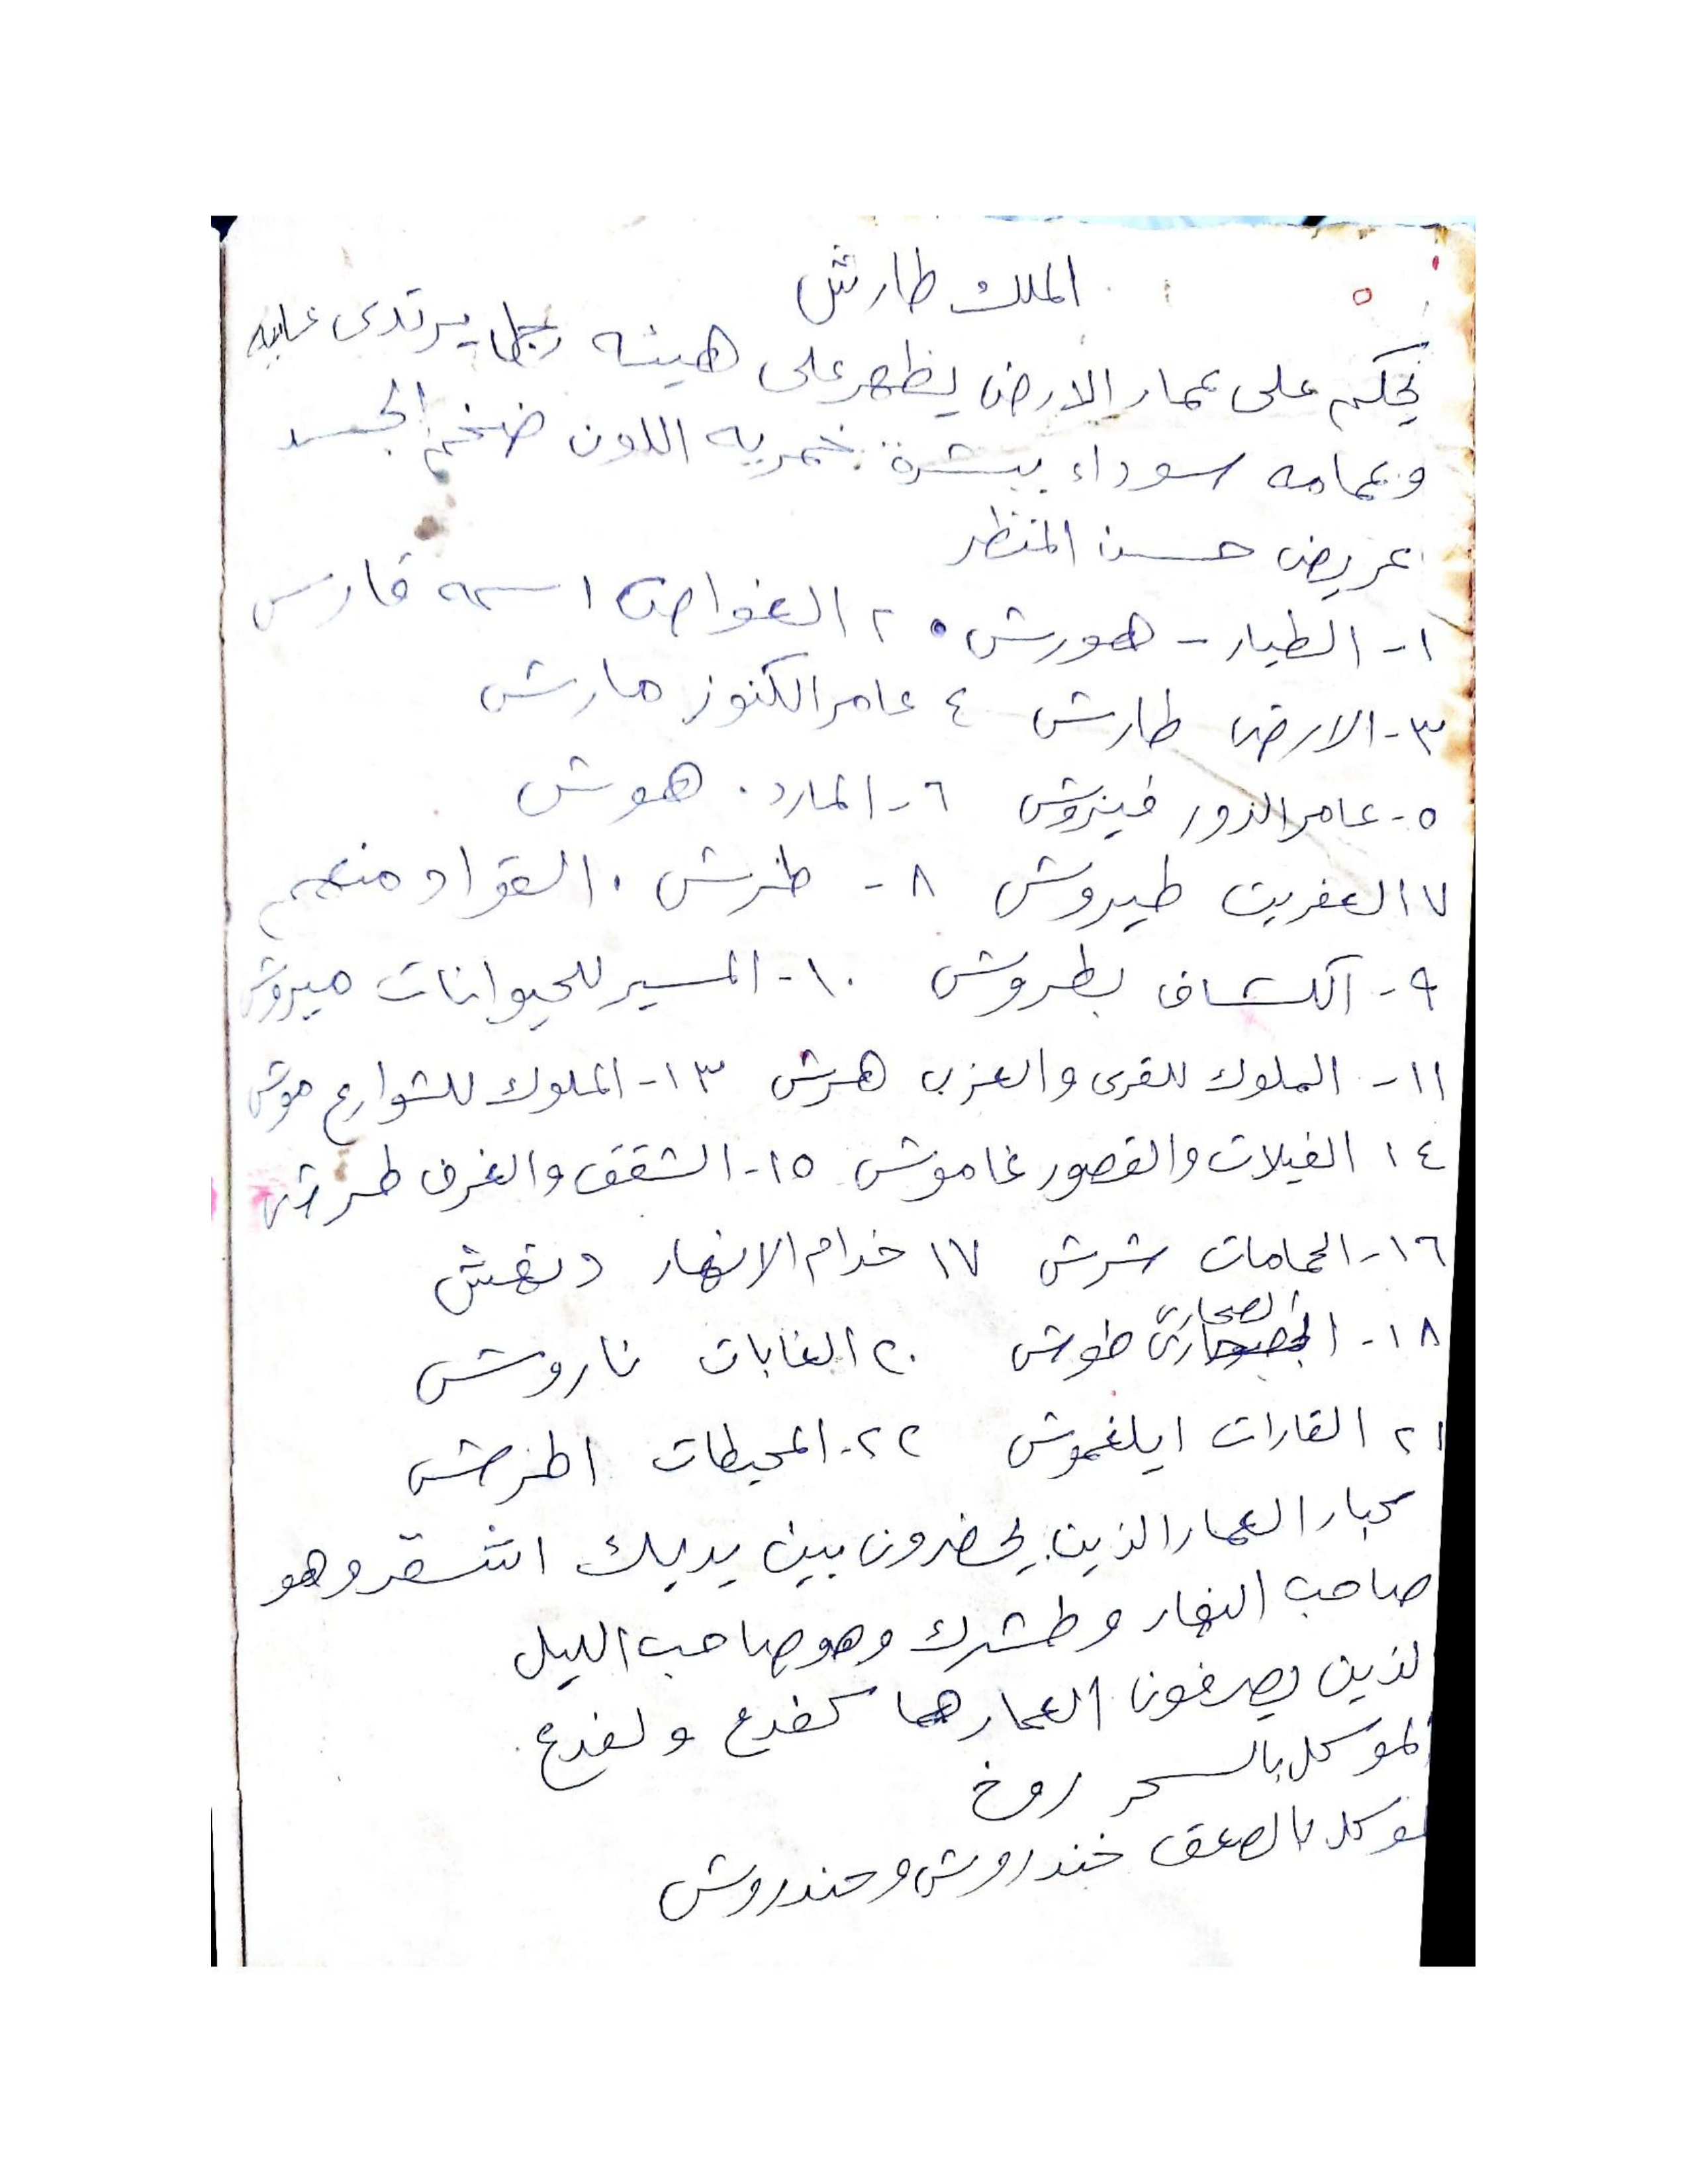 ٥
الملك طارش
يحكم على عمار الارض يظهر على هيئه رجل يرتدى عبايه
وعمامه سوداء ببشرة خمريه اللون ضخم الجسد
عريض حسن المنظر
١- الطيار - هورش . ٢ الغواص اسمه قارس
٣- الارض طارش ٤ عامر الكنوز مارش
٥- عامر الدور فينروش ٦- المارد . هوش
٧ العفريت طيروش ٨ - طرش . القواد منهم
٩- الكشاف بطروش ١٠- المسير للحيوانات ميروش
١١- الملوك للقرى والعزب هرش ١٣- الملوك للشوارع موش
١٤ الفيلات والقصور غاموش ١٥- الشقق والغرف طرش
١٦- الحمامات شرش ١٧ خدام الانهار دنهش
١٨- الصحارى طوش ٢٠ الغابات ناروش
٢١ القارات ايلغموش ٢٢- المحيطات
كبار العمار الذين يحضرون بين يديك اشقر وهو
صاحب النهار وطشرك وهو صاحب الليل
لذين يصرفون العمار هما كفدع ولفدع
الموكل بالسحر روخ
موكل بالصعق خندروش وحندروش